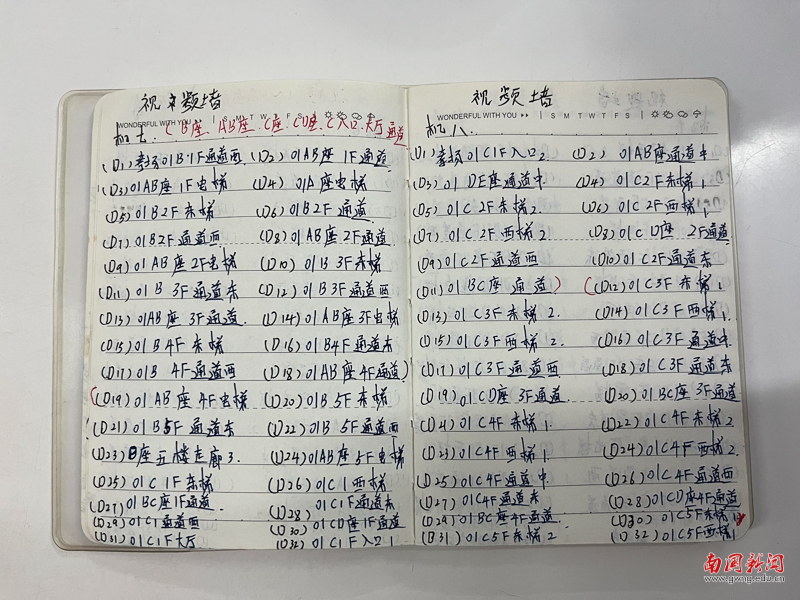 视频墙
WONDERFUL WITH YOU ▸▸ S M T W T F S
机七: C B座、AB座、C座、CD座、C入口、大厅 通道
(D1) 教技01B1F通道西 (D2) 01AB座 1F通道
(D3) 01AB座 1F电梯 (D4) 01A座电梯
(D5) 01B2F东梯 (D6) 01B2F通道
(D7) 01B2F通道西 (D8) 01AB座2F通道
(D9) 01AB座2F电梯 (D10) 01B 3F东梯
(D11) 01B 3F通道东 (D12) 01B 3F通道西
(D13) 01AB座 3F通道 (D14) 01AB座3F电梯
(D15) 01B4F东梯 (D16) 01B4F通道东
(D17) 01B 4F通道西 (D18) 01AB座4F通道)
((D19) 01AB座4F电梯 (D20) 01B 5F东梯
(D21) 01B5F通道东 (D22) 01B 5F通道西
(D23) B座五楼走廊3 (D24) 01AB座5F电梯
(D25) 01C 1F东梯 (D26) 01C1西梯
(D27) 01BC座1F通道 (D28) 01C1F通道东
(D29) 01C1通道西 (D30) 01CD座1F通道
(D31) 01C1F大厅 (D32) 01C1F入口1
视频墙
WONDERFUL WITH YOU ▸▸ S M T W T F S
机八、
(D1) 教技01C1F入口2 (D2) 01AB座通道中
(D3) 01DE座通道中 (D4) 01C2F东梯1
(D5) 01C 2F东梯2 (D6) 01C 2F西梯1
(D7) 01C 2F西梯2 (D8) 01C D座 2F通道
(D9) 01C2F通道西 (D10) 01C2F通道东
(D11) 01BC座通道) ((D12) 01C3F东梯1
(D13) 01C3F东梯2. (D14) 01C3F西梯1.
(D15) 01C3F西梯2. (D16) 01C3F通道中
(D17) 01C3F通道西 (D18) 01C3F通道东
(D19) 01CD座3F通道. (D20) 01BC座3F通道
(D21) 01C4F东梯1. (D22) 01C4F东梯2
(D23) 01C4F西梯1. (D24) 01C4F西梯2.
(D25) 01C4F通道中 (D26) 01C4F通道西
(D27) 01C4F通道东 (D28) 01CD座4F通道
(D29) 01BC座4F通道. (D30) 01C5F东梯1
(B31) 01C5F东梯2 (D32) 01C5F西梯1
南国新闻
www.gwng.edu.cn